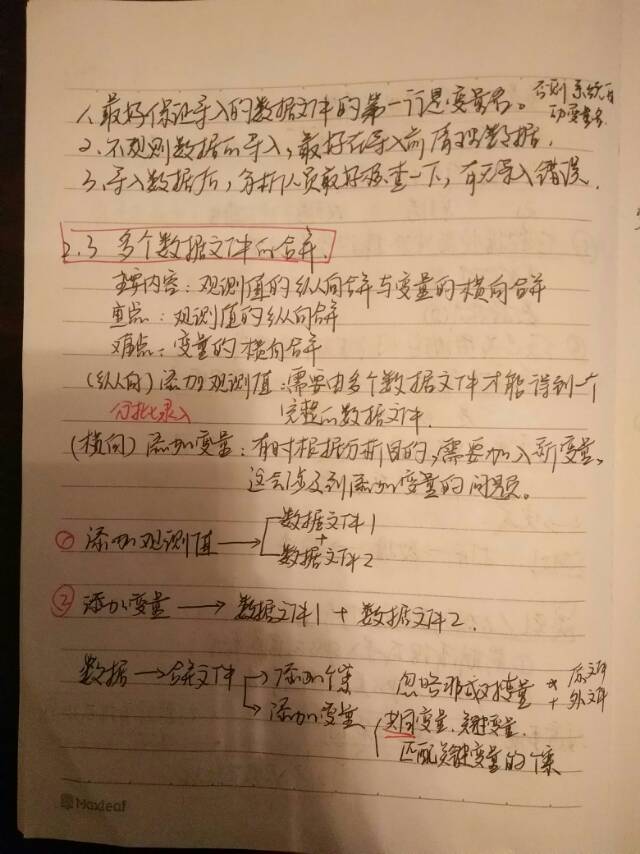 1、最好保证导入的数据文件的第一行是变量名。否则系统自
动变量名.
2、不规则数据的导入，最好在导入前清理数据.
3、导入数据后，分析人员最好检查一下，有无导入错误.
2.3 多个数据文件的合并.
主要内容：观测值的纵向合并与变量的横向合并
重点：观测值的纵向合并
难点：变量的横向合并
(纵向) 添加观测值：需要由多个数据文件才能得到一个
分批录入 完整的数据文件.
(横向) 添加变量：有时根据分析目的，需要加入新变量，
这会涉及到添加变量的问题。
① 添加观测值 → 数据文件1
+
数据文件2
② 添加变量 → 数据文件1 + 数据文件2.
数据 → 合并文件 → 添加个案 忽略非成对变量 * 原文件
+ 外文件
→ 添加变量 共同变量、关键变量.
匹配关键变量的个案
Maxleaf